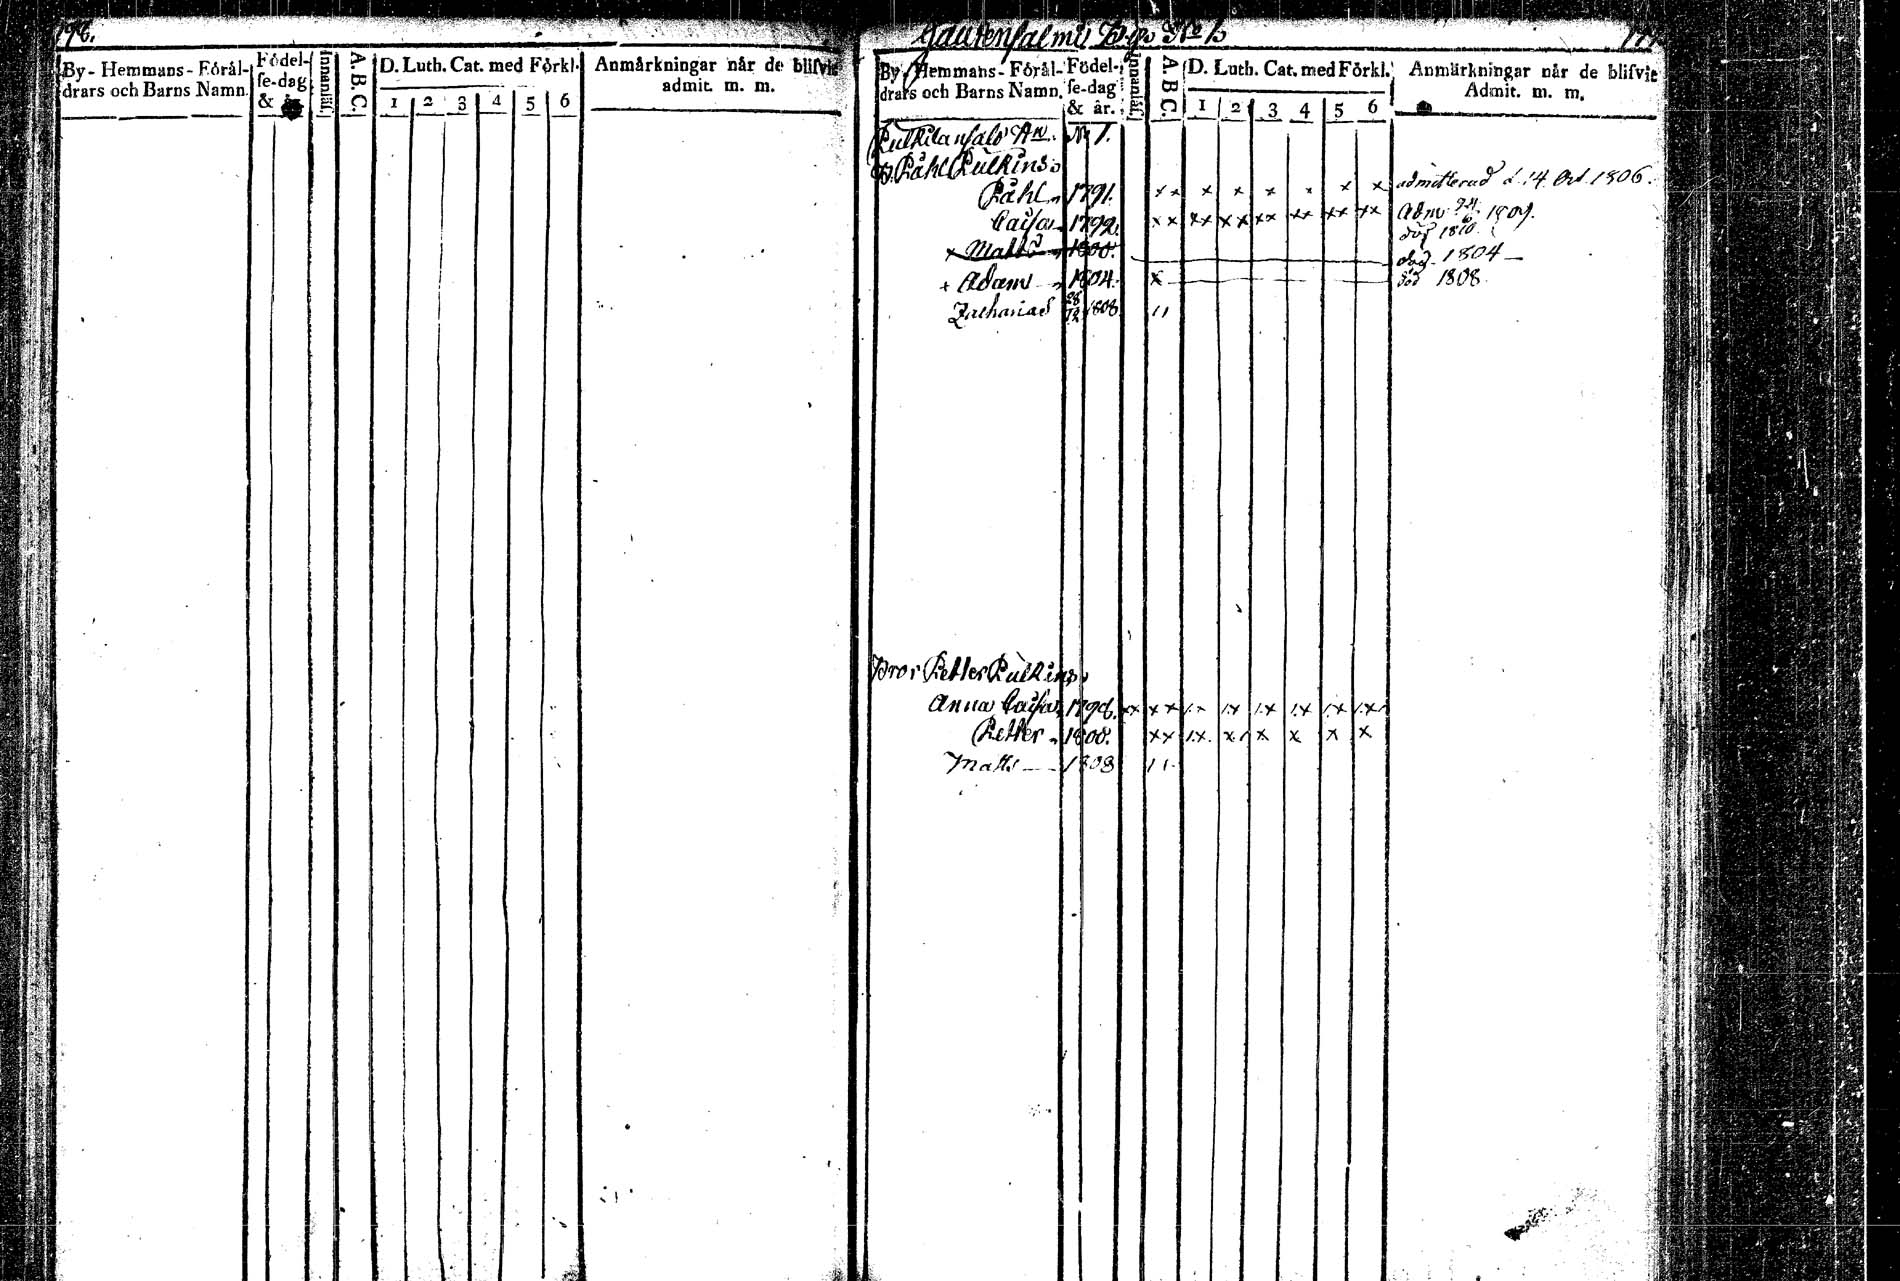 198.
By-Hemmans-Förål-
drars och Barns Namn.
Födel-
se-dag
& år
Innanläs.
A.B.C.
D. Luth. Cat. med Förkl.
1 2 3 4 5 6
Anmårkningar når de blifvit
admit. m. m.
Jautensalmi By No
By-Hemmans-Föräl-
drars och Barns Namn.
Födel-
se-dag
& år.
Innanläs.
A.B.C.
D. Luth. Cat. med Förkl.
1 2 3 4 5 6
Anmärkningar når de blifvit
Admit. m. m.
No 1.
Påhl Pulkins
Påhl 1791. x x x x x x x x admitterad d. 14 Oct. 1806.
Caisa 1792. xx xx xx xx xx xx xx Adm 24/6 1809.
1810.
x Matts 1800. död 1804
+ Adam 1804. x död 1808.
Zacharias 28/12 1808 11
Bror Petter Pulkins
Anna Caisa 1798. xx xx 1x 1x 1x 1x 1x 1x
Petter 1800. xx 1x x1 x x x x
Matts 1808 11